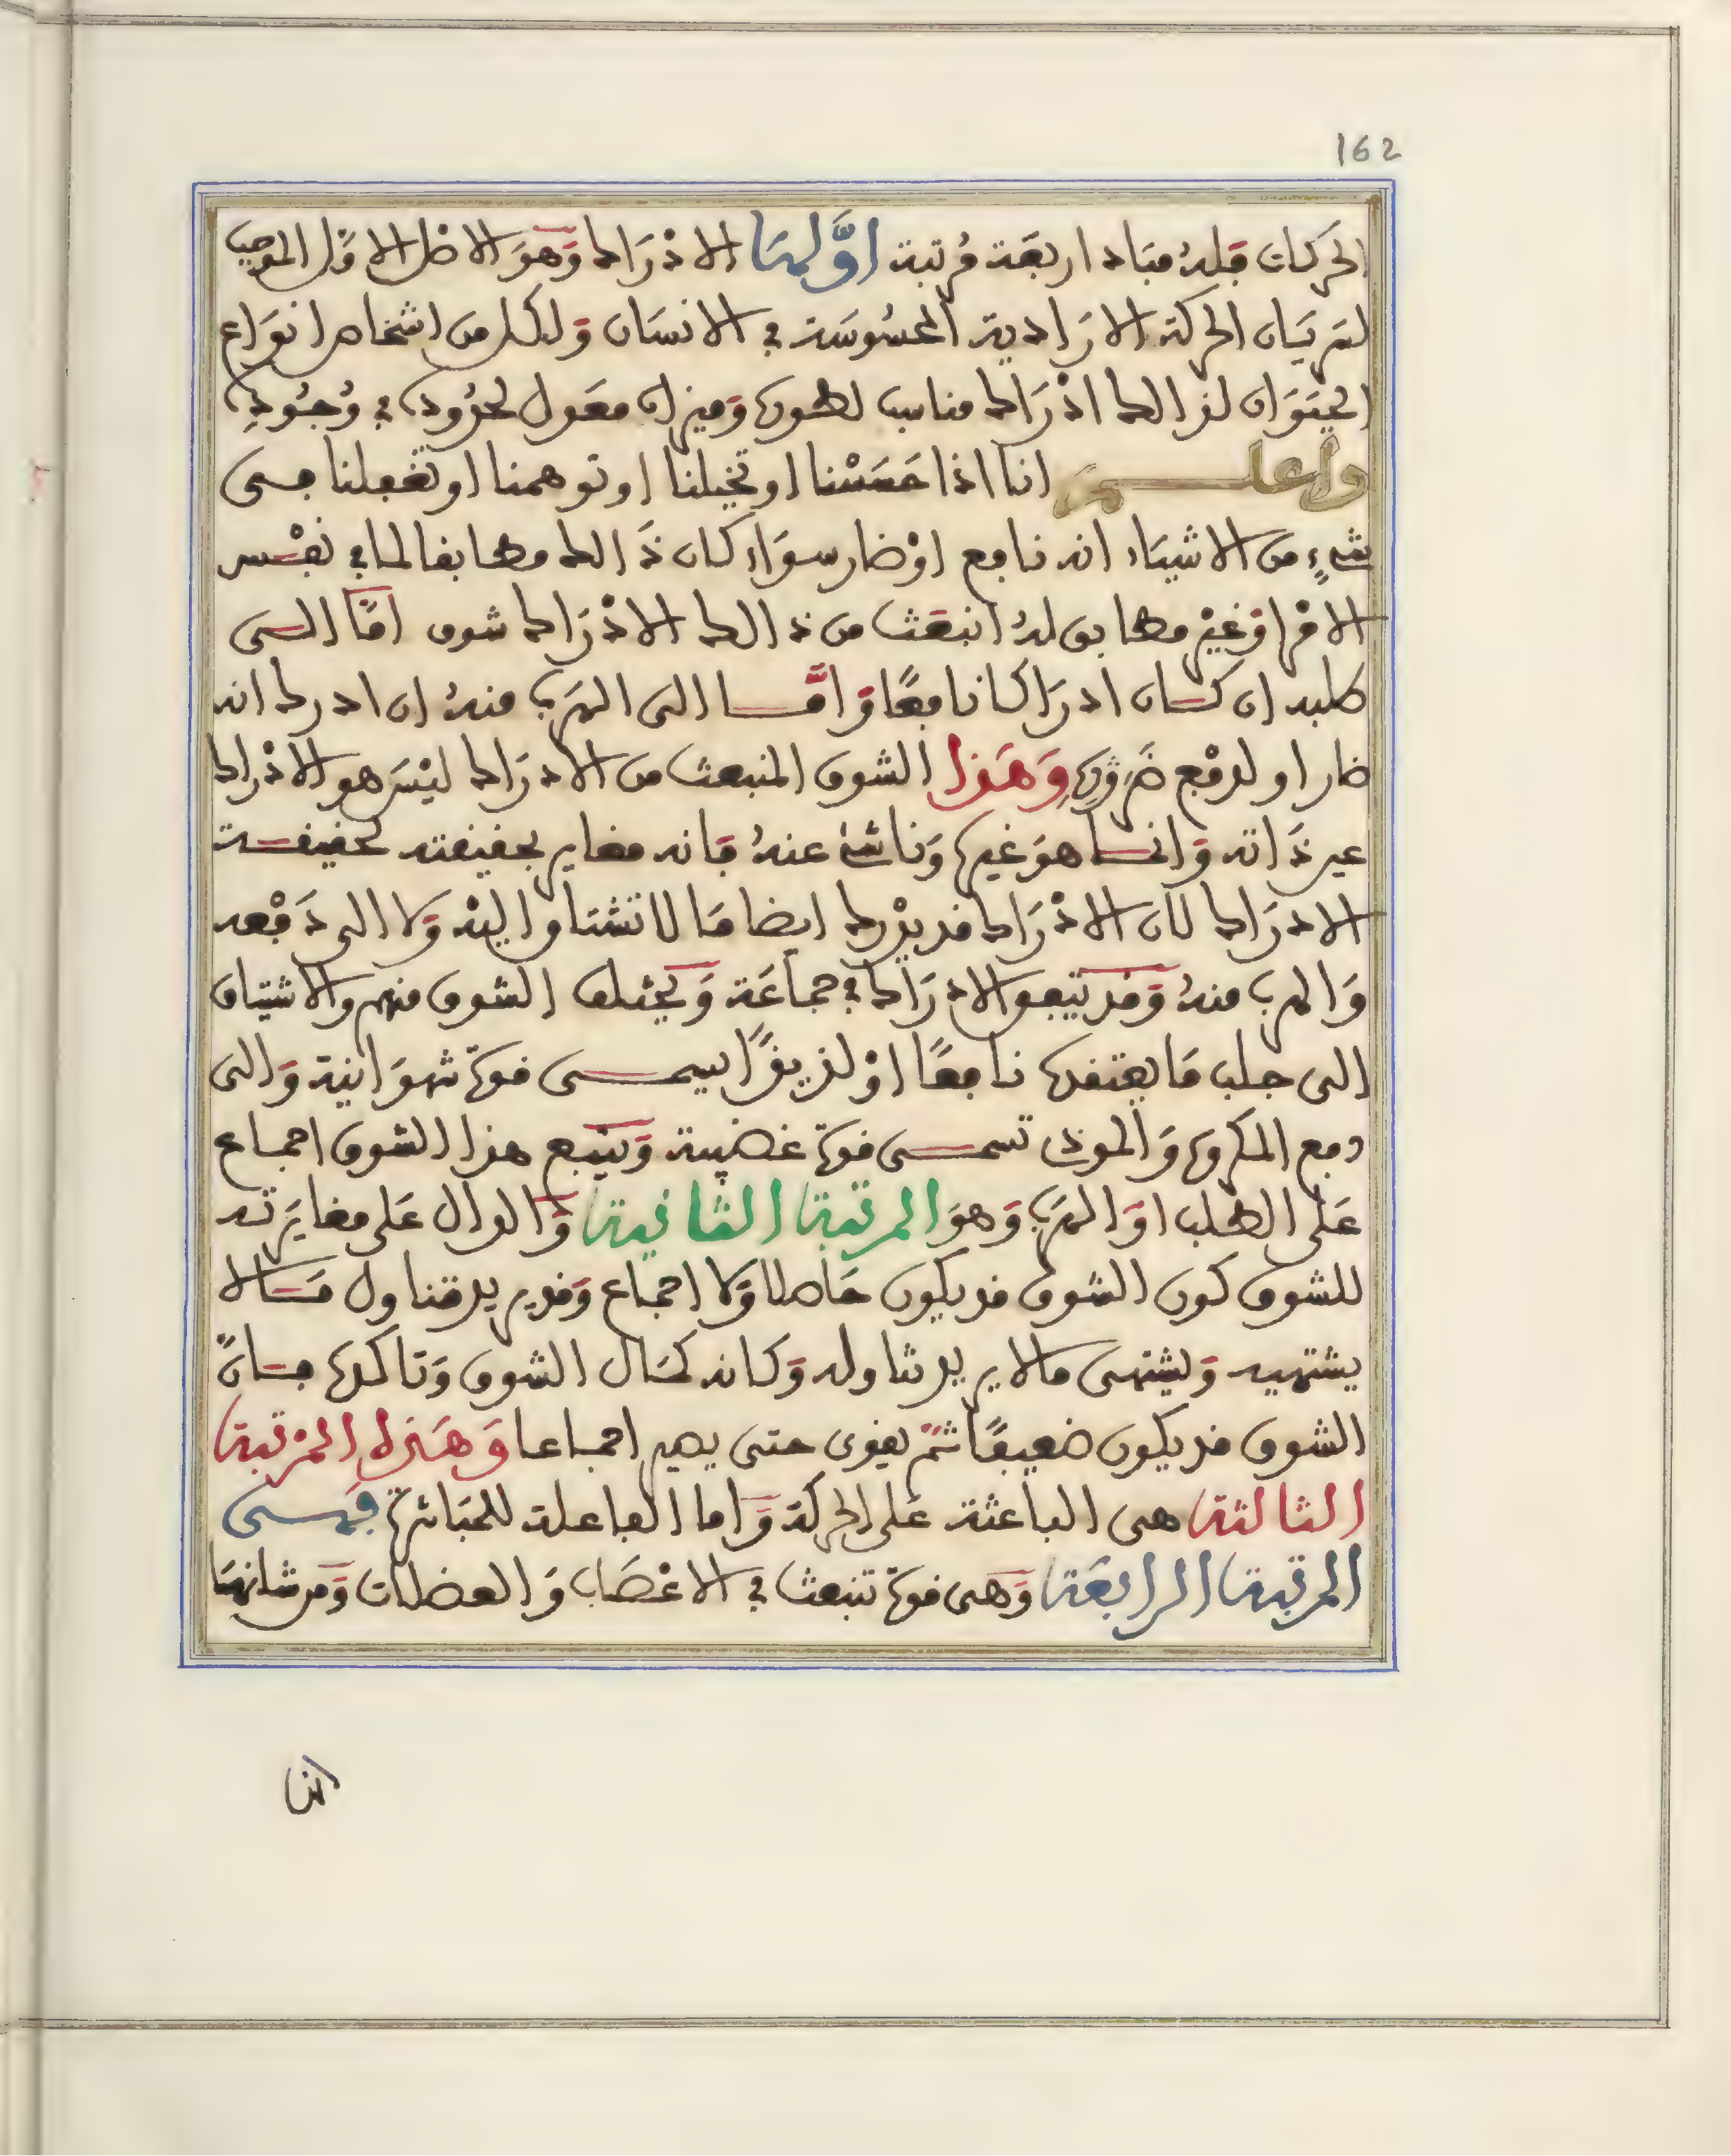 162
الحركات فله مباد اربعة مرتبة اوّلها الادْرَاك وَهوَ الاصل الاوّل الموجب
لسريان الحركة الارادية المحسُوسَة في الانسان وَلكل من اشخاص انوَاع
الحيَوَان لذالك ادْرَاك مناسب لطوره وَميزان معَول لحدُوده في وُجُودِه
واعلـــم انا اذا حَسَسْنا او تخيلنا او توهمنا او تعقلنا فى
شىءٍ من الاشيَاء انه نافع اوْ ضار سوَاء كان ذَالك مطابقا لما في نفْس
الامْر اوَ غيْر مطابق له انبعَث من ذالك الادْرَاك شوق امَّا الـى
طلبه ان كـان ادرَاكا نافعًا وَامَّـــا الى الهرَب منهُ ان ادرك انه
ضار او لدفْع ضَرَرِه وَهَذا الشوق المنبعث من الادرَاك ليْسَ هو الادْراك
عين ذَاته وَانمـا هوَ غيره وَناشئ عنهُ فانه مغاير بحقيقته لحقيقـة
الادرَاك لان الادْرَاك قد يدْرك ايضا مَا لا تشتاق اليْه وَلا الى دَفْعه
وَالهرب منهُ وَقد يتبعو الادرَاك في جمَاعَة وَيختلف الشوق منهم والاشتياق
الى جلب مَا يعتقده نافعًا اوْ لذيذًا يسمـــى قوة شهوَانية وَالى
دفع المكروه وَالموذى تسمـــى قوة غضبية وَيتبع هذا الشوق اجماع
عَلى الطلب اوَ الهرَب وَهوَ المرتبة الثانية وَالدال عَلى مغايَرته
للشوق كون الشوق قد يكون حَاصلا وَلا اجماع وَقد يريد تناول مَـالا
يشتهيه وَيشتهى مالا يريد تناوله وَكانه كمَال الشوق وَتاكده فـانّ
الشوق قد يكون ضعيفًا ثمّ يقوى حتى يصير اجمـاعا وَهَذه المرْتبة
الثالثة هى الباعثة عَلى الحركة وَاما الفاعلة للمبَاشرة فهـــى
المرتبة الرابعَة وَهى قوة تنبعث في الاعْصَاب وَالعضلات وَمن شانها